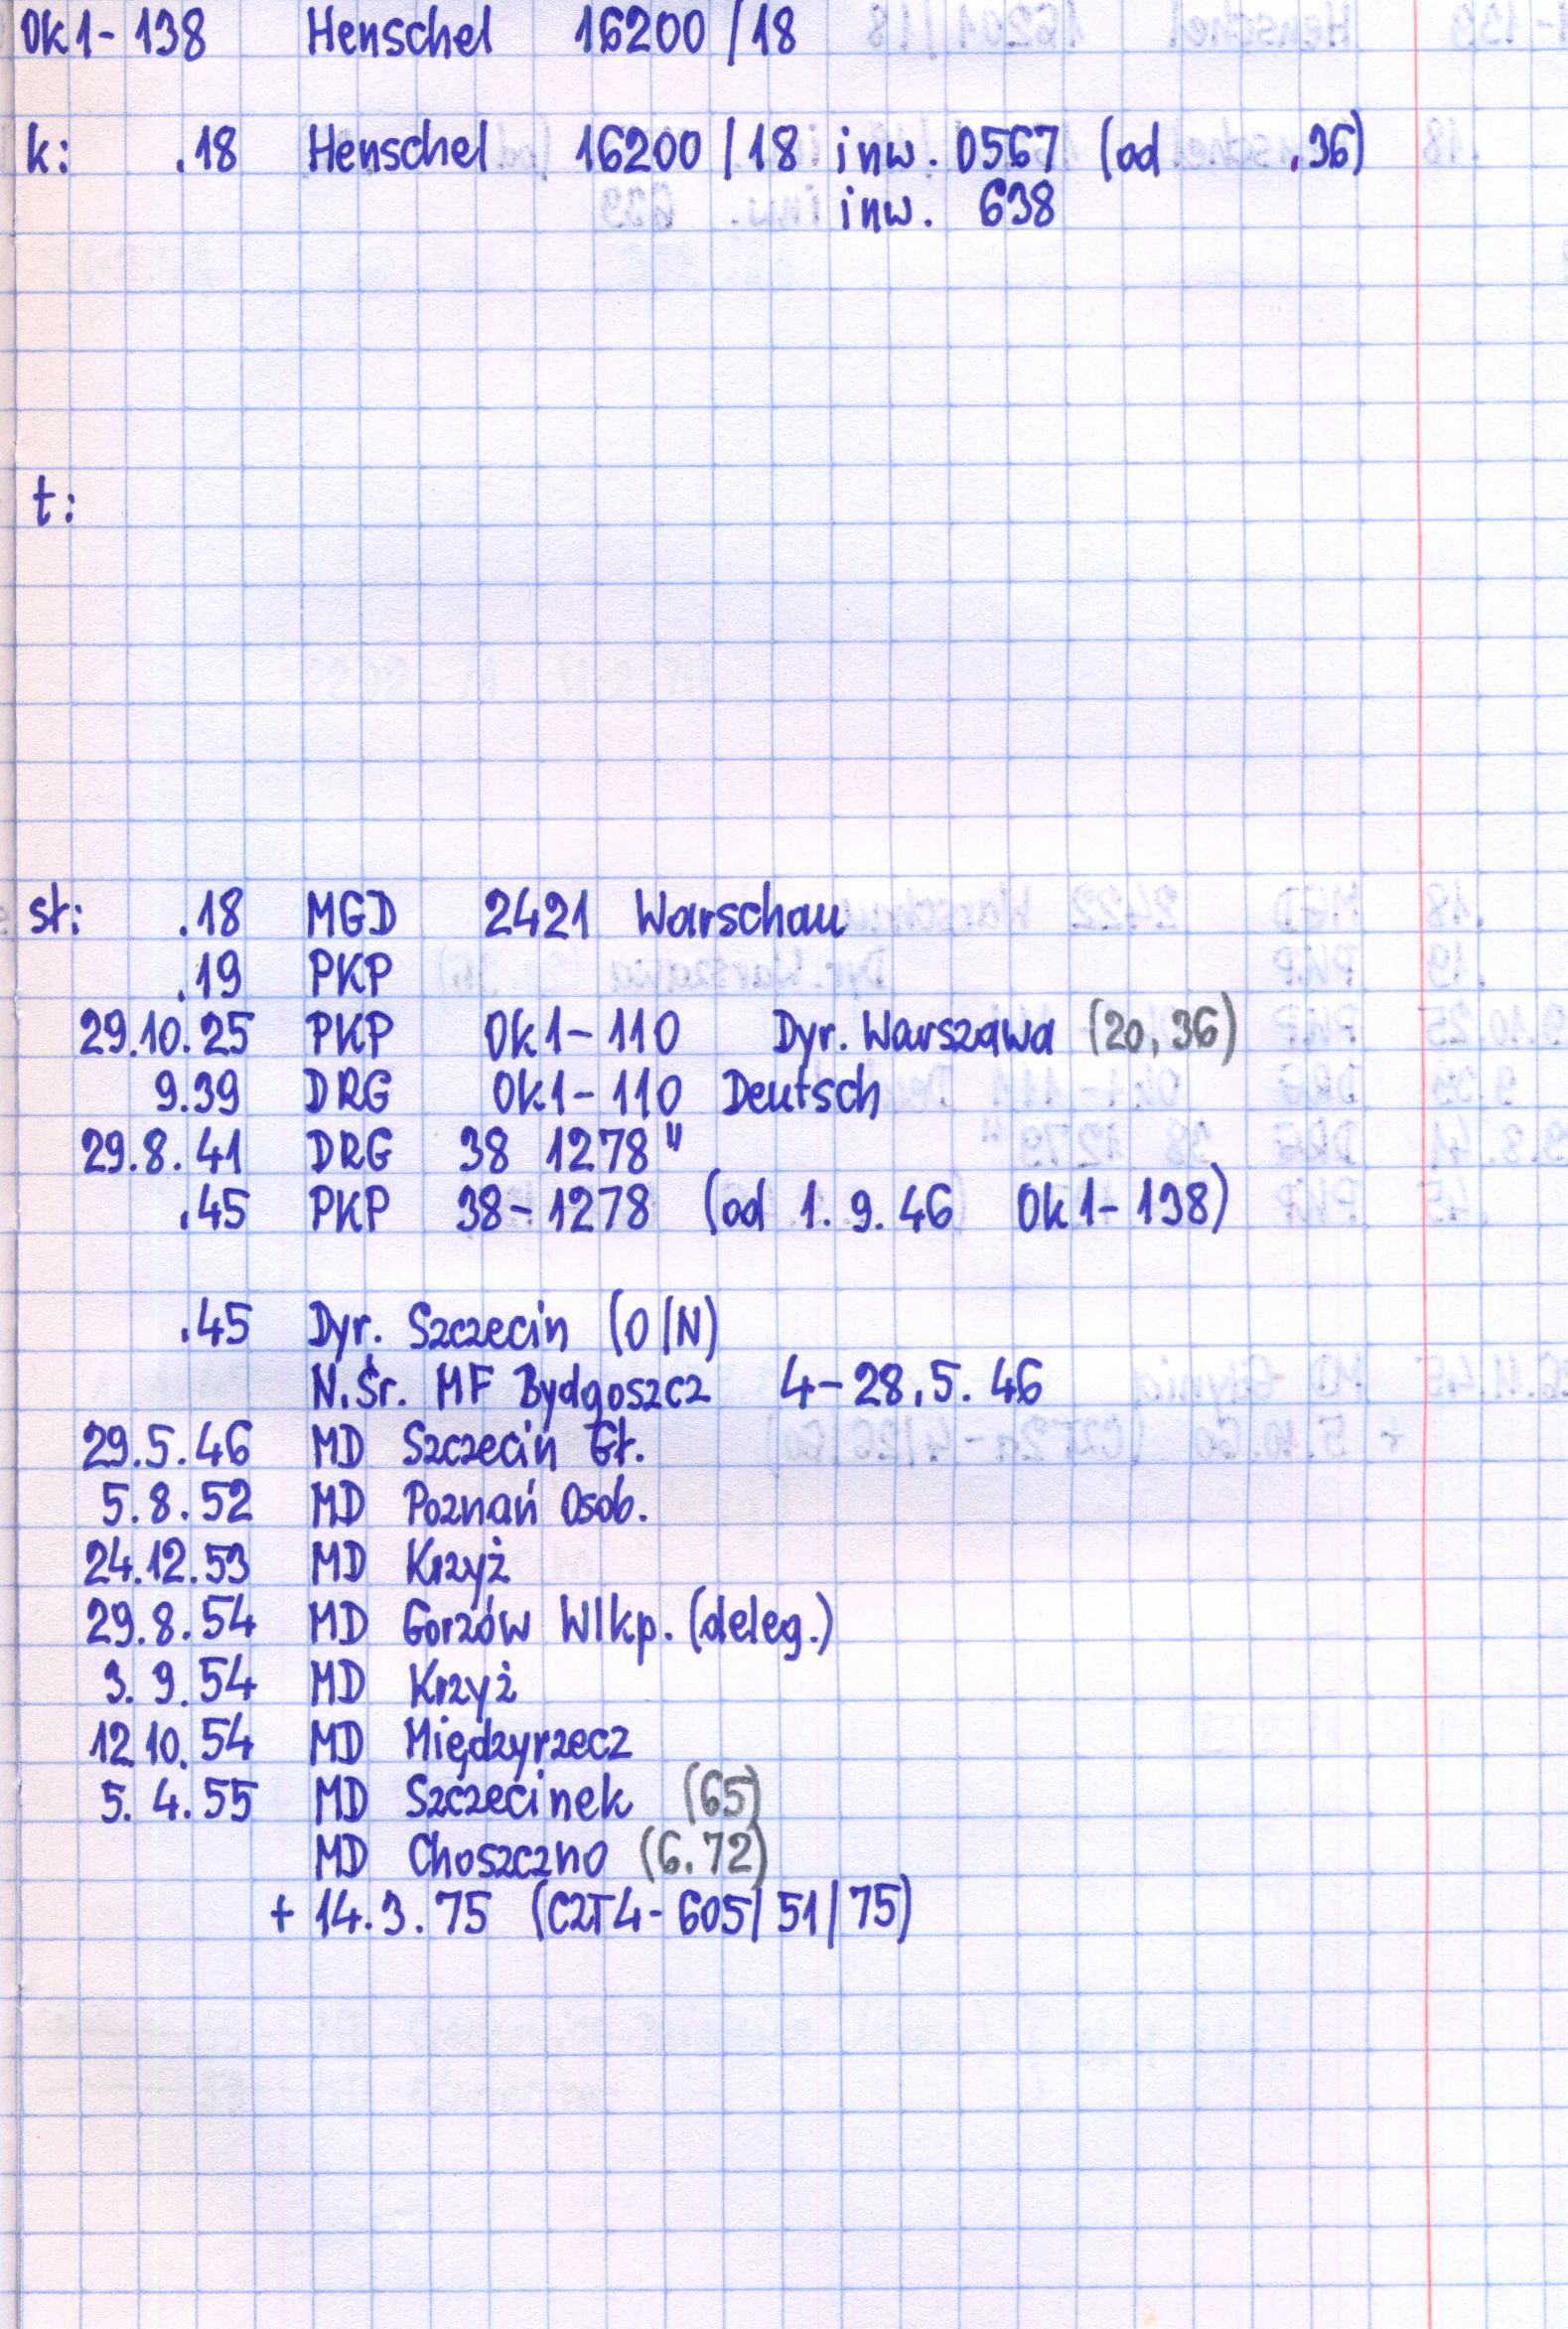 Ok1-138 Henschel 16200/18
k: .18 Henschel 16200/18 inw. 0567 (od .36)
inw. 638
t:
st: .18 MGD 2421 Warschau
.19 PKP
29.10.25 PKP Ok1-110 Dyr. Warszawa (20, 36)
9.39 DRG Ok1-110 Deutsch
29.8.41 DRG 38 1278"
.45 PKP 38-1278 (od 1.9.46 Ok1-138)
.45 Dyr. Szczecin (O/N)
N.Śr. MF Bydgoszcz 4-28.5.46
29.5.46 MD Szczecin Gł.
5.8.52 MD Poznań Osob.
24.12.53 MD Krzyż
29.8.54 MD Gorzów Wlkp. (deleg.)
3.9.54 MD Krzyż
12.10.54 MD Międzyrzecz
5.4.55 MD Szczecinek (65)
MD Choszczno (6.72)
+ 14.3.75 (CZT4-605/51/75)